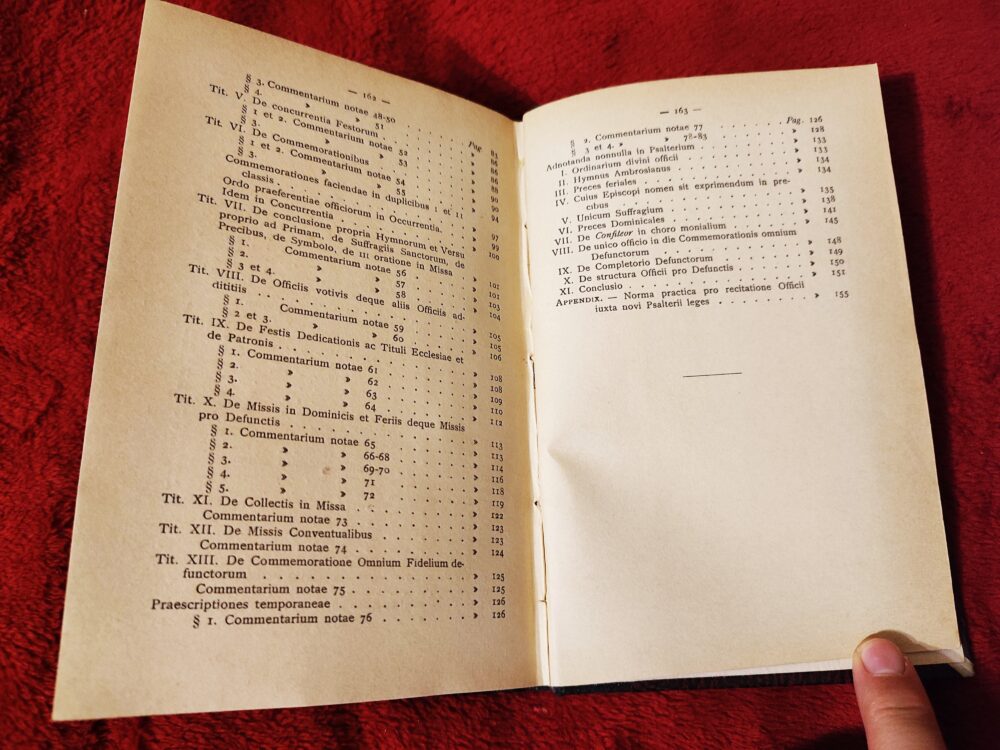 — 162 —
Pag
§ 3. Commentarium notae 48-50 . . . . 83
§ 4. » » 51 . . . .
Tit. V. De concurrentia Festorum . . . .
§ 1 et 2. Commentarium notae 52 . . . . 86
§ 3. » » 53 . . . . 86
Tit. VI. De Commemorationibus . . . .
§ 1 et 2. Commentarium notae 54 . . . .
§ 3. » » 55 . . . .
Commemorationes faciendae in duplicibus I et II
classis . . . . 90
Ordo praeferentiae officiorum in Occurrentia . . . .
Idem in Concurrentia . . . .
Tit. VII. De conclusione propria Hymnorum et Versu
proprio ad Primam, de Suffragiis Sanctorum, de
Precibus, de Symbolo, de III oratione in Missa
§ 1. Commentarium notae 56 . . . . » 101
§ 2. » » 57 . . . . » 101
§ 3 et 4. » » 58 . . . . » 103
Tit. VIII. De Officiis votivis deque aliis Officiis ad-
dititiis . . . . » 104
§ 1. Commentarium notae 59 . . . . » 105
§ 2 et 3. » » 60 . . . . » 105
Tit. IX. De Festis Dedicationis ac Tituli Ecclesiae et
de Patronis . . . . » 106
§ 1. Commentarium notae 61 . . . . » 108
§ 2. » » 62 . . . . » 108
§ 3. » » 63 . . . . » 109
§ 4. » » 64 . . . . » 110
Tit. X. De Missis in Dominicis et Feriis deque Missis
pro Defunctis . . . . » 112
§ 1. Commentarium notae 65 . . . . » 113
§ 2. » » 66-68 . . . . » 113
§ 3. » » 69-70 . . . . » 114
§ 4. » » 71 . . . . » 116
§ 5. » » 72 . . . . » 118
Tit. XI. De Collectis in Missa . . . . » 119
Commentarium notae 73 . . . . » 122
Tit. XII. De Missis Conventualibus . . . . » 123
Commentarium notae 74 . . . . » 123
Tit. XIII. De Commemoratione Omnium Fidelium de-
functorum . . . . » 125
Commentarium notae 75 . . . . » 125
Praescriptiones temporaneae . . . . » 126
§ 1. Commentarium notae 76 . . . . » 126
— 163 —
§ 2. Commentarium notae 77 . . . . Pag. 126
§ 3 et 4. » » 78-83 . . . . » 128
Adnotanda nonnulla in Psalterium . . . . » 133
I. Ordinarium divini officii . . . . » 133
II. Hymnus Ambrosianus . . . . » 134
III. Preces feriales . . . . » 134
IV. Cuius Episcopi nomen sit exprimendum in pre-
cibus . . . . » 135
V. Unicum Suffragium . . . . » 138
VI. Preces Dominicales . . . . » 141
VII. De Confiteor in choro monialium . . . . » 145
VIII. De unico officio in die Commemorationis omnium
Defunctorum . . . . » 148
IX. De Completorio Defunctorum . . . . » 149
X. De structura Officii pro Defunctis . . . . » 150
XI. Conclusio . . . . » 151
APPENDIX. — Norma practica pro recitatione Officii
iuxta novi Psalterii leges . . . . » 155